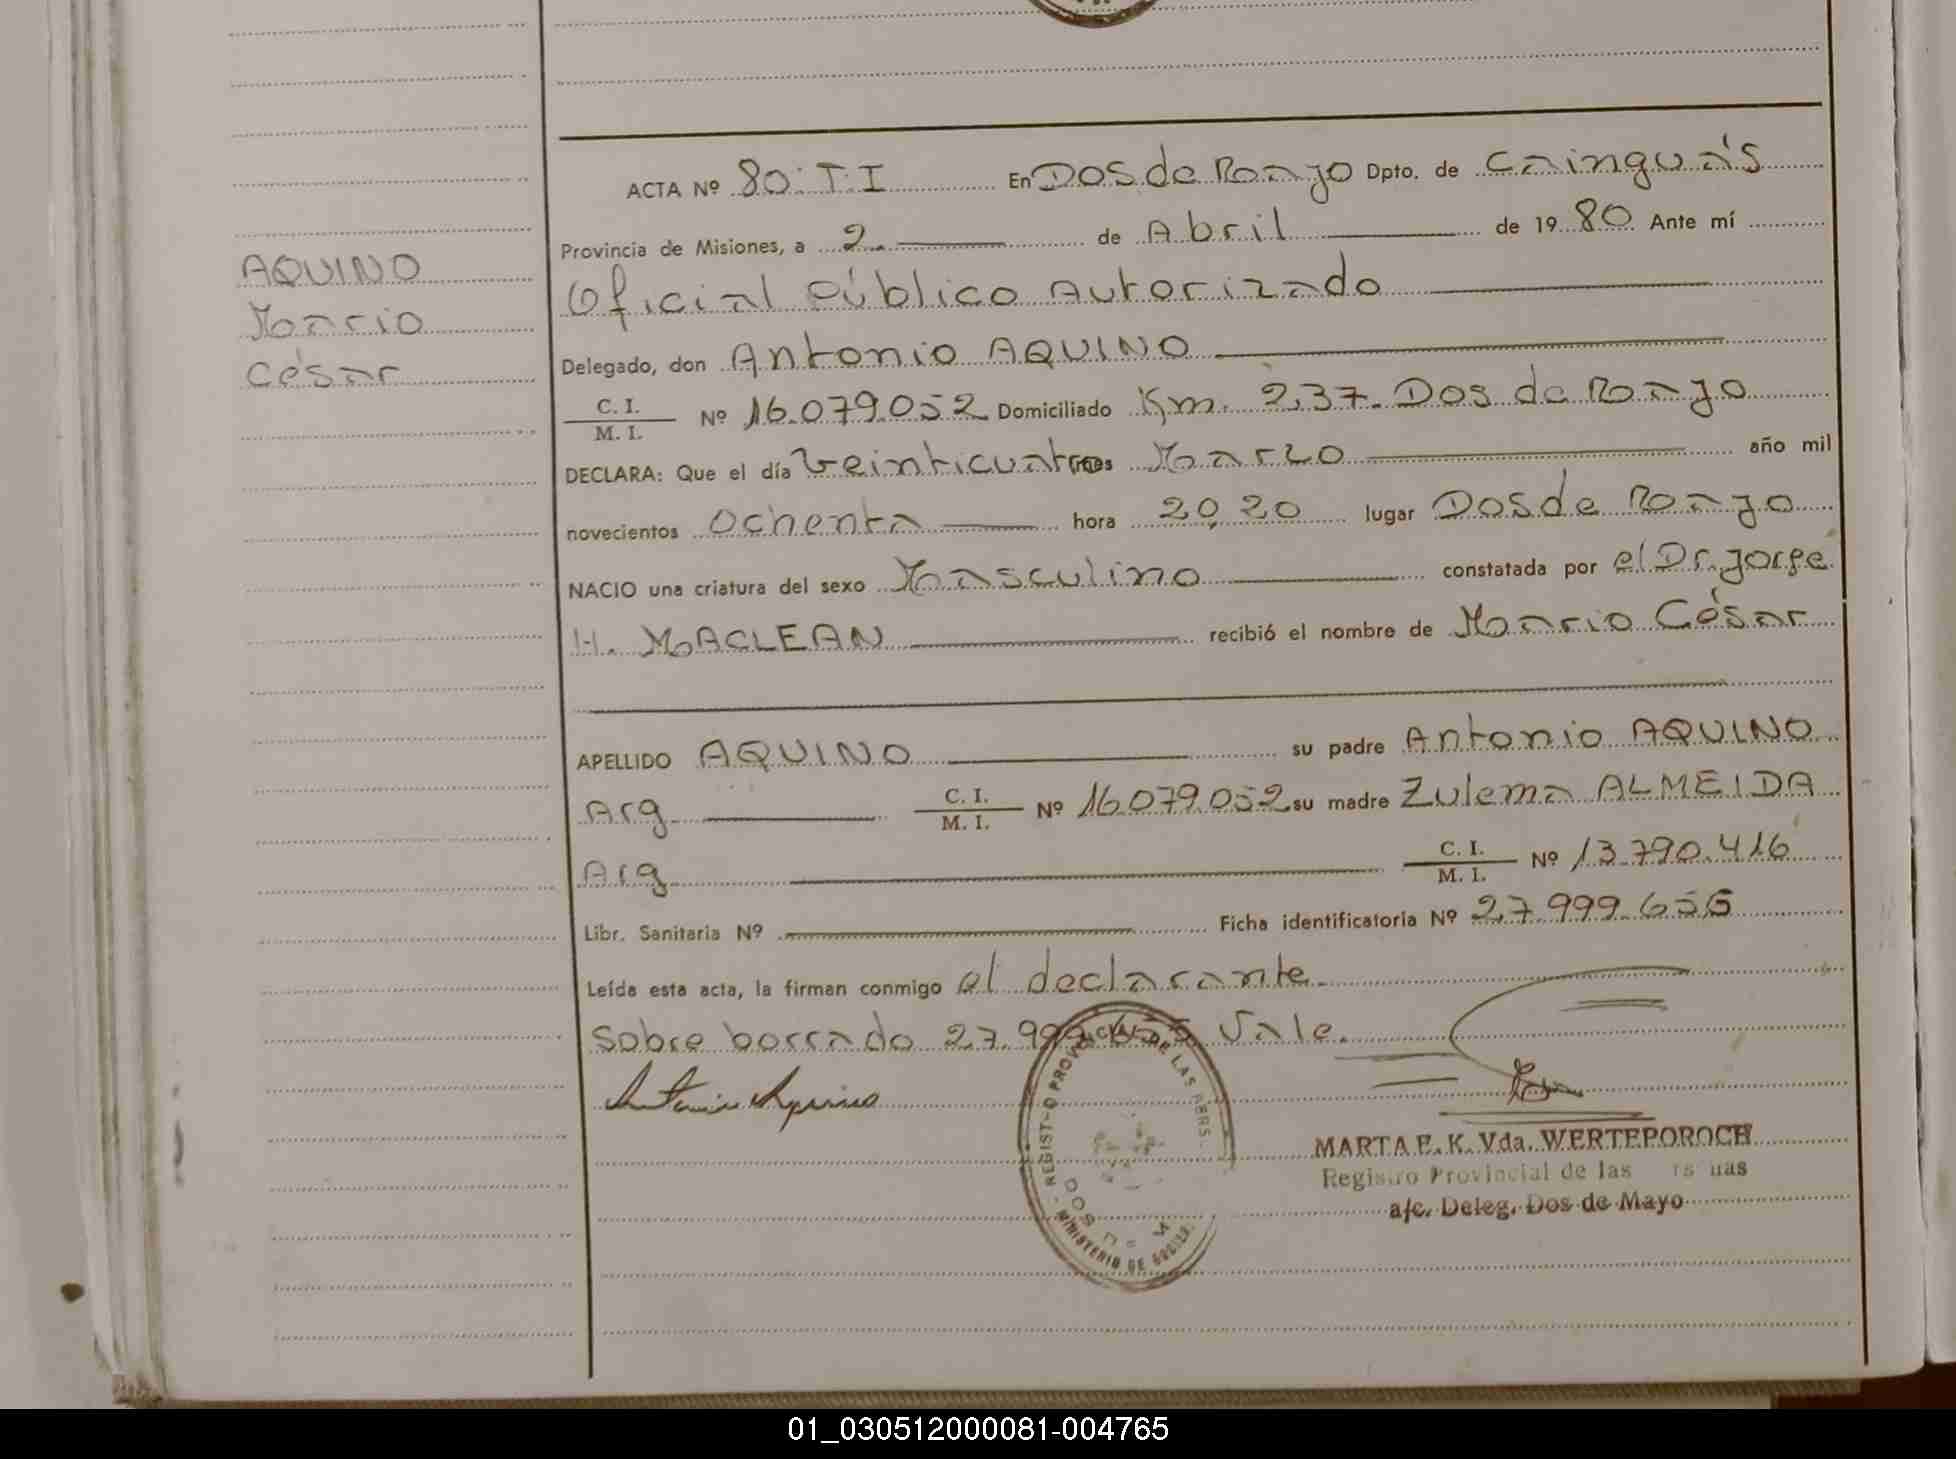 ACTA Nº 80: T.I En Dos de Mayo Dpto. de Cainguá's
Provincia de Misiones, a 2 de Abril de 1980 Ante mí
Oficial Público Autorizado
AQUINO
Mario
César
Delegado, don Antonio AQUINO
C. I. / M. I. Nº 16.079.052 Domiciliado Km. 237. Dos de Mayo
DECLARA: Que el día Veinticuatro mes Marzo año mil
novecientos ochenta hora 20,20 lugar Dos de Mayo
NACIO una criatura del sexo Masculino constatada por el Dr. Jorge
H. MACLEAN recibió el nombre de Mario César
APELLIDO AQUINO su padre Antonio AQUINO
Arg C. I. / M. I. Nº 16.079.052 su madre Zulema ALMEIDA
Arg C. I. / M. I. Nº 13.790.416
Libr. Sanitaria Nº Ficha identificatoria Nº 27.999.656
Leída esta acta, la firman conmigo el declarante.
Sobre borrado 27.999 Vale.
Antonio Aquino
REGISTRO PROVINCIAL DE LAS PERS.
MINISTERIO DE
MARTA E. K. Vda. WERTEPOROCH
Registro Provincial de las
a/c. Deleg. Dos de Mayo
01_030512000081-004765